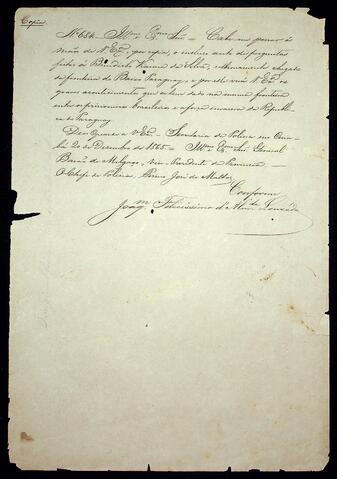 Copia
Nº 684. Illmo Exmo Snr — Cabe-me passar ás
mãos de VExa, por copia, o incluso auto de perguntas
feitas á Benedicto da Silva, ultimamente chegado
da fronteira do Baixo Paraguay, e por elle verá VExa os
graves acontecimentos que se tem dado na mesma fronteira
entre os prisioneiros brasileiros e a força invasora da Republi
ca do Paraguay.
Deos Guarde a VExa — Secretaria da Policia em Cuia
bá 20 de Dezembro de 1865 — Illmo Exmo Snr General
Barão de Melgaço, vice-Presidente da Provincia
O Chefe de Policia, Firmo José de Mattos
Conforme
Joaqm Felicissimo d'Almda Louzada